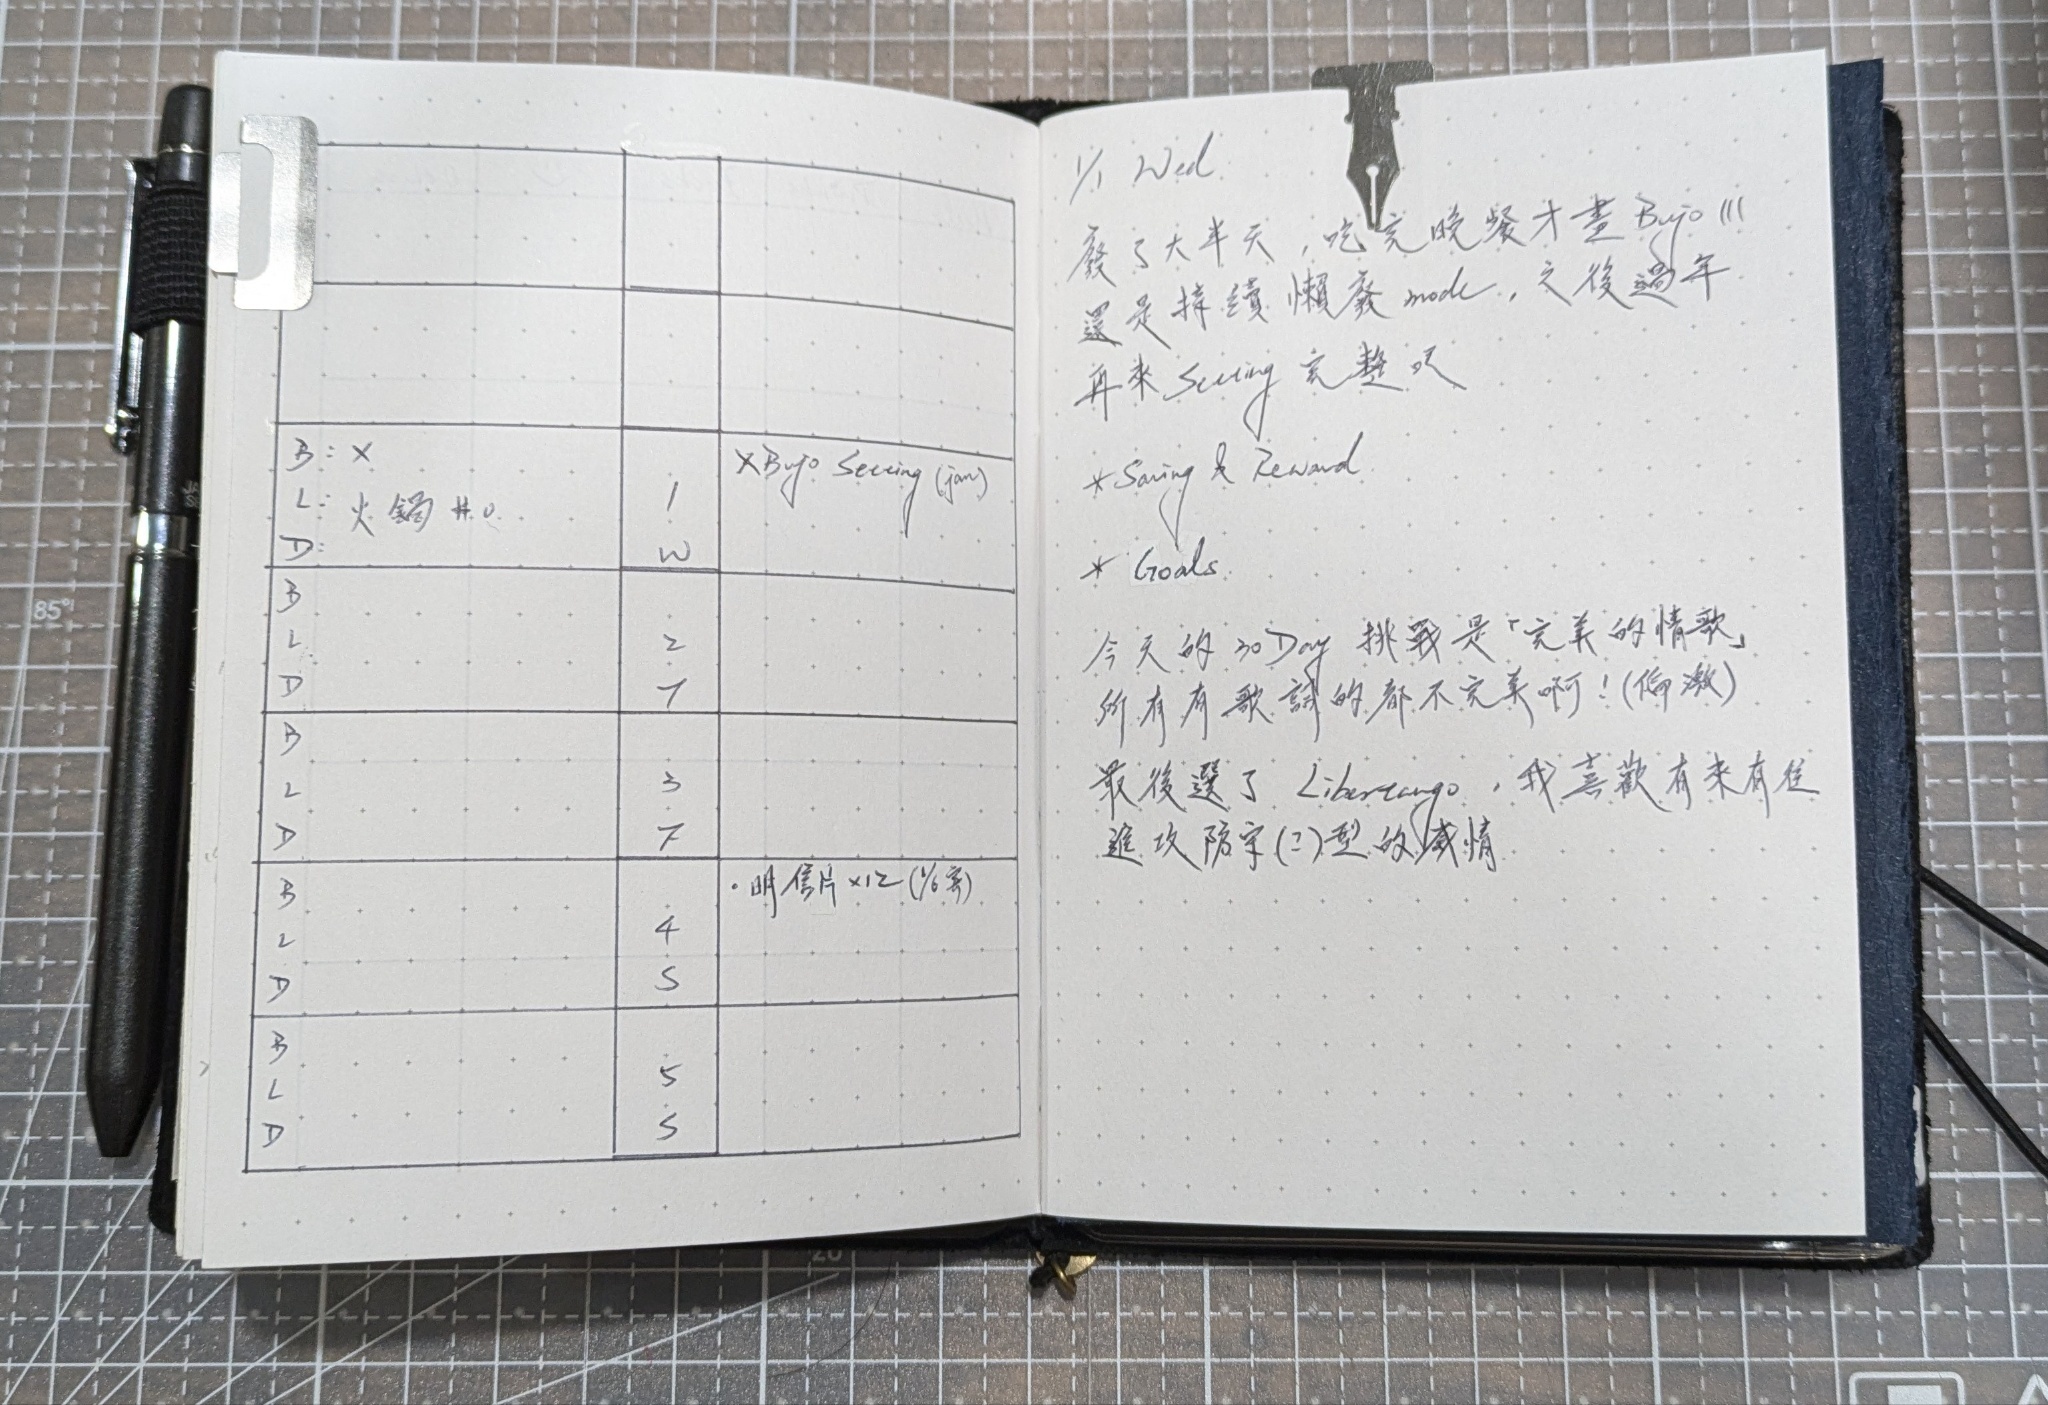 B: X
L: 火鍋
D:
1
W
XBujo Setting (jan)
B
L
D
2
T
B
L
D
3
F
B
L
D
4
S
・明信片 x12 (1/6寄)
B
L
D
5
S
1/1 Wed.
廢了大半天，吃完晚餐才畫 Bujo \\\
還是持續懶廢 mode，之後過年
再來 Setting 完整的
*Saving & Reward
* Goals.
今天的 30 Day 挑戰是「完美的情歌」
所有有歌詞的都不完美啊！(偏激)
最後選了 Libertango，我喜歡有來有往
進攻防守(?)型的感情
85°
20